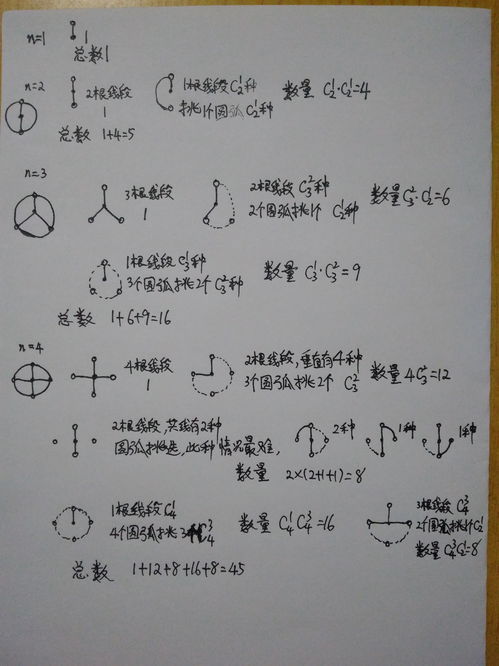 n=1 1
总数1
n=2 2根线段 1根线段C₂¹种 数量 C₂¹·C₂¹=4
1 挑1个圆弧C₂¹种
总数 1+4=5
n=3
3根线段 2根线段 C₃²种 数量C₃²·C₂¹=6
1 2个圆弧挑1个 C₂¹种
1根线段 C₃¹种 数量 C₃¹·C₃²=9
3个圆弧挑2个 C₃²种
总数 1+6+9=16
n=4
4根线段 2根线段,垂直有4种 数量 4C₃²=12
1 3个圆弧挑2个 C₃²
2根线段,共线有2种 2种 1种 1种
圆弧挑选,此种情况最难,
数量 2×(2+1+1)=8
1根线段C₄¹ 数量 C₄¹C₄³=16 3根线段 C₄³
4个圆弧挑3 C₄³ 2个圆弧挑1个C₂¹
数量C₄³C₂¹=8
总数 1+12+8+16+8=45